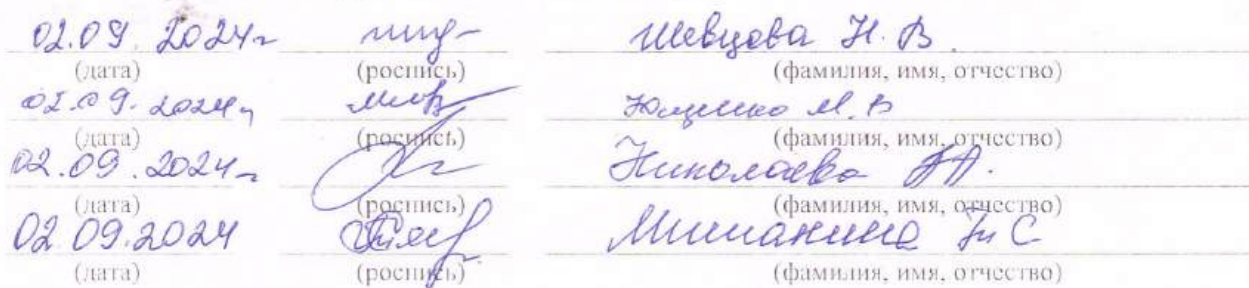 02.09.2024г Шевцова Н.В.
(дата) (роспись) (фамилия, имя, отчество)
02.09.2024г Ющенко М.В
(дата) (роспись) (фамилия, имя, отчество)
02.09.2024г Николаева
(дата) (роспись) (фамилия, имя, отчество)
02.09.2024
(дата) (роспись) (фамилия, имя, отчество)